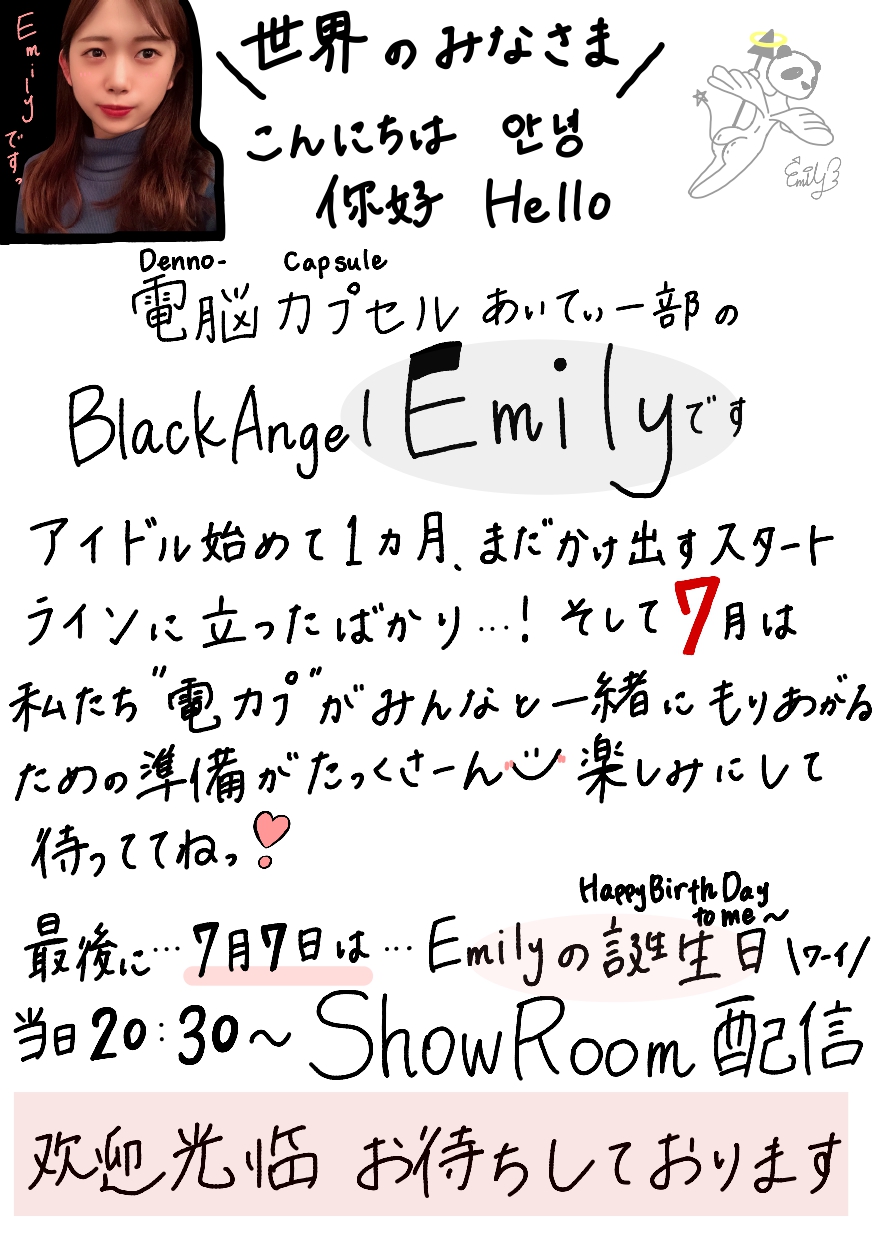 Emilyです。
\世界のみなさま/
こんにちは 안녕
你好 Hello
Emily
Denno- Capsule
電脳カプセル あいてぃー部の
BlackAngel Emilyです
アイドル始めて1ヵ月、まだかけ出すスタート
ラインに立ったばかり…! そして7月は
私たち"電カプ"がみんなと一緒にもりあがる
ための準備がたっくさーん 楽しみにして
待っててねっ
HappyBirthDay
to me~
最後に…7月7日は…Emilyの誕生日\ワーイ/
当日20:30~ShowRoom配信
欢迎光临 お待ちしております